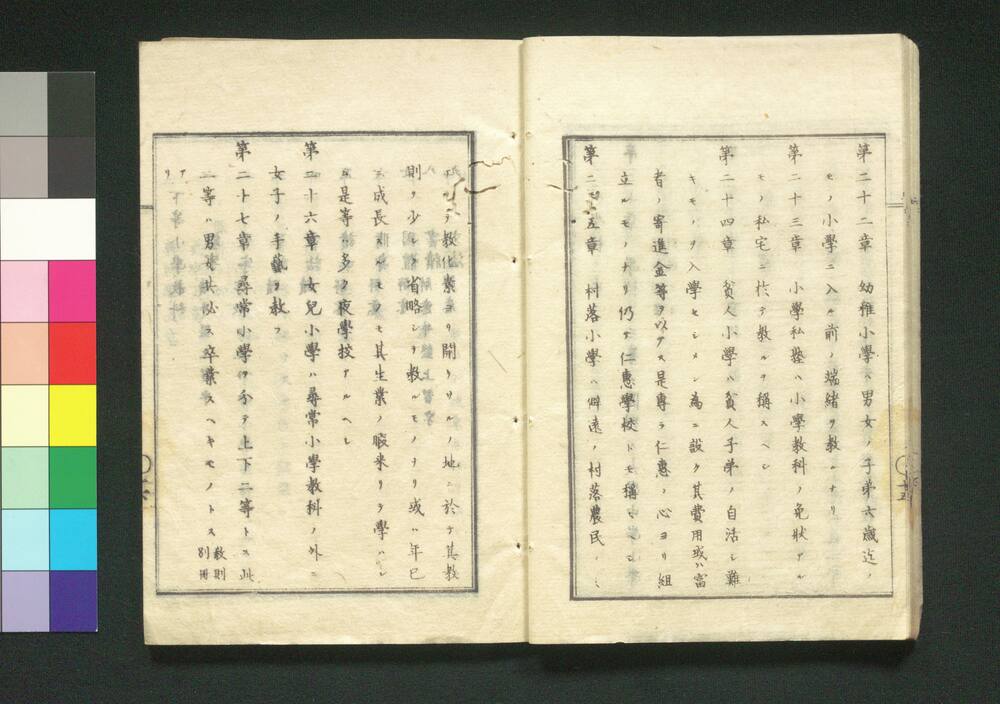 第二十二章　幼稚小學ハ男女ノ子弟六歳迄ノ
モノ小學ニ入ル前ノ端緒ヲ教ルナリ
第二十三章　小學私塾ハ小學教科ノ免狀アル
モノ私宅ニ於テ教ルヲ稱スヘシ
第二十四章　貧人小學ハ貧人子弟ノ自活シ難
キモノヲ入學セシメン為ニ設ク其費用或ハ富
者ノ寄進金等ヲ以テス是專ラ仁惠ノ心ヨリ組
立ルモノナリ仍テ仁惠學校トモ稱スヘシ
第二十五章　村落小學ハ僻遠ノ村落農民ノミ
アリテ教化素ヨリ開ケサルノ地ニ於テ其教
則ヲ少シク省略シテ教ルモノナリ或ハ年已
ニ成長スルモノモ其生業ノ暇来リテ學ハシ
ム是等ハ多ク夜學校アルヘシ
第二十六章　女兒小學ハ尋常小學教科ノ外ニ
女子ノ手藝ヲ教フ
第二十七章　尋常小學ヲ分テ上下二等トス此
二等ハ男女共必ス卒業スヘキモノトス 教則別冊
アリ
十五